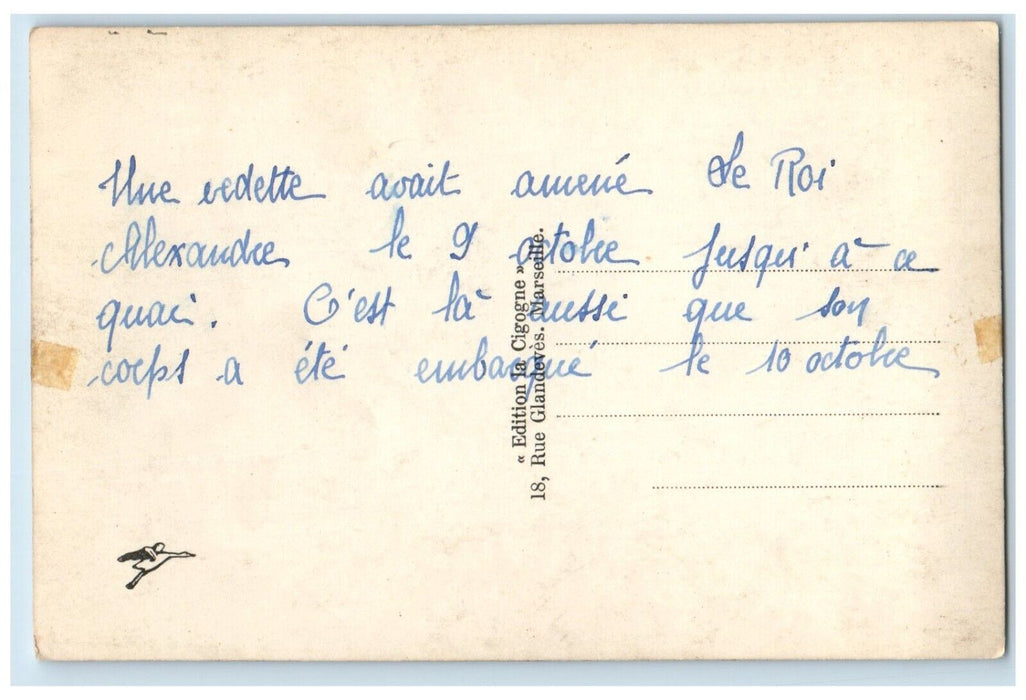 Une vedette avait amené Le Roi
Alexandre le 9 octobre jusqu'à ce
quai. C'est là aussi que son
corps a été embarqué le 10 octobre
« Edition la Cigogne »
18, Rue Glandevès. Marseille.